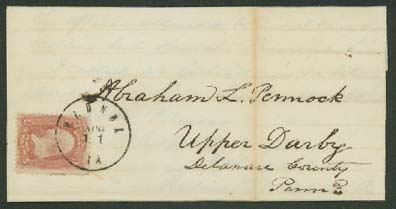 Abraham L. Pennock
Upper Darby
Delaware County
Penna
AUG
IA